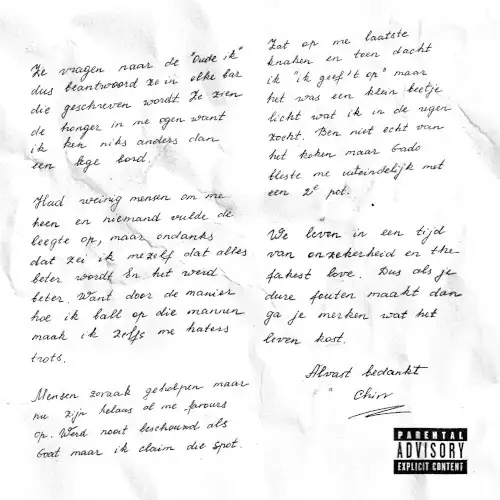 Ze vragen naar de "Oude ik"
dus beantwoord ze in elke bar
die geschreven wordt. Ze zien
de honger in me ogen want
ik ken niks anders dan
een lege bord.
Had weinig mensen om me
heen en niemand vulde de
leegte op, maar ondanks
dat zei ik mezelf dat alles
beter wordt En het werd
beter. Want door de manier
hoe ik ball op die mannen
maak ik zelfs me haters
trots.
Mensen zovaak geholpen maar
nu zijn helaas al me favours
op. Werd nooit beschouwd als
Goat maar ik claim die spot.
Zat op me laatste
knaken en toen dacht
ik "ik geef 't op" maar
het was een klein beetje
licht wat ik in de regen
zocht. Ben niet echt van
het koken maar Gado
bleste me uiteindelijk met
een 2e pot.
We leven in een tijd
van onzekerheid en the
fakest love. Dus als je
dure fouten maakt dan
ga je merken wat het
leven kost.
Alvast bedankt
Chivv
PARENTAL
ADVISORY
EXPLICIT CONTENT